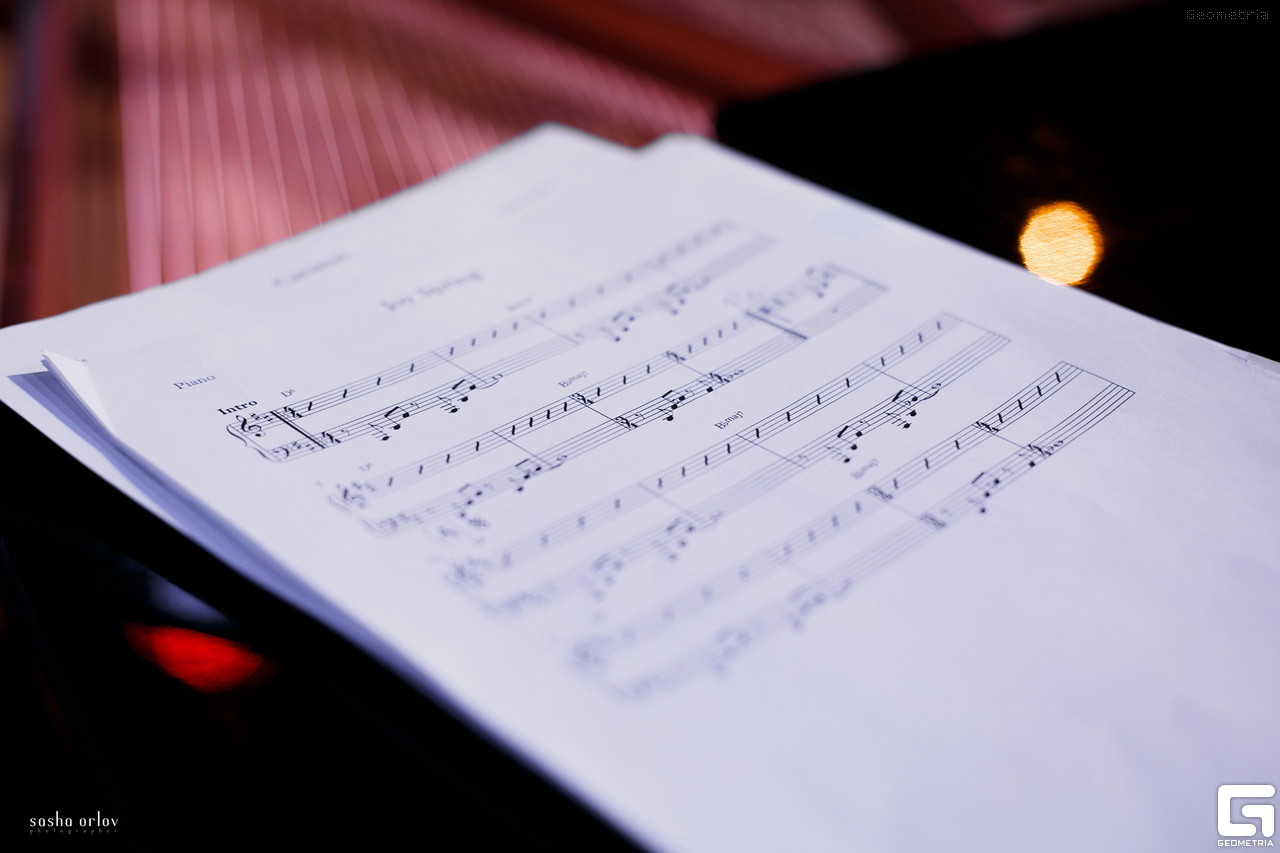 Geometria
Joy Spring
Piano
Intro
D⁶
B♭maj7
D⁶
B♭maj7
B♭maj7
sasha orlov
photographer
GEOMETRIA